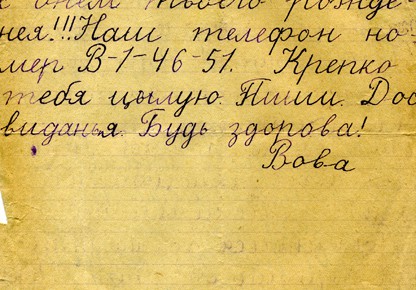 с днём твоего рожде
ния!!!Наш телефон но-
мер В-1-46-51. Крепко
тебя цылую. Пиши. Дос
виданья. Будь здорова!
Вова